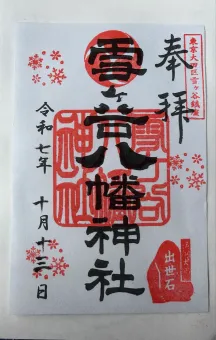 東京大田区雪ヶ谷鎮座
奉拝
雪ヶ谷八幡神社
令和七年 十月十三日
出世石